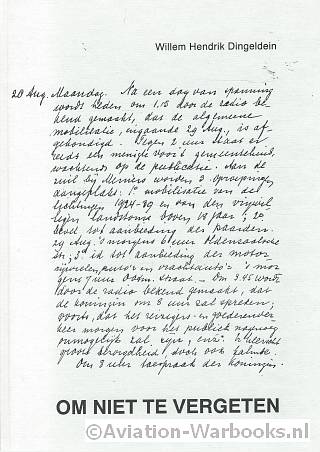 Willem Hendrik Dingeldein
28 Aug. Maandag. Na een dag van spanning
wordt heden om 1.15 door de radio be-
kend gemaakt, dat de algemeene
mobilisatie, ingaande 29 Aug., is af-
gekondigd. Tegen 2 uur staat er
reeds een menigte voor 't gemeentehuis,
wachtend op de publicatie. Aan de
ruit bij worden 3 oproepingen
aangeplakt: 1e mobilisatie van de
lichtingen 1924-39 en van den vrijwil-
ligen landstorm boven 18 jaar; 2e
bevel tot aanbieding der paarden
29 Aug. 's morgens 6 uur Oldenzaalsche
str.; 3e id tot aanbieding der motor
rijwielen, auto's en vrachtauto's 's mor
gens 7 uur straat. - Om 3.45 wordt
door de radio bekend gemaakt, dat
de koningin om 8 uur zal spreken;
voorts, dat het reizigers- en goederenver-
keer morgen voor het publiek nagenoeg
onmogelijk zal zijn, enz. Er heerscht
groote bezorgdheid, doch ook kalmte.
Om 8 uur toespraak der koningin.
OM NIET TE VERGETEN
©Aviation-Warbooks.nl